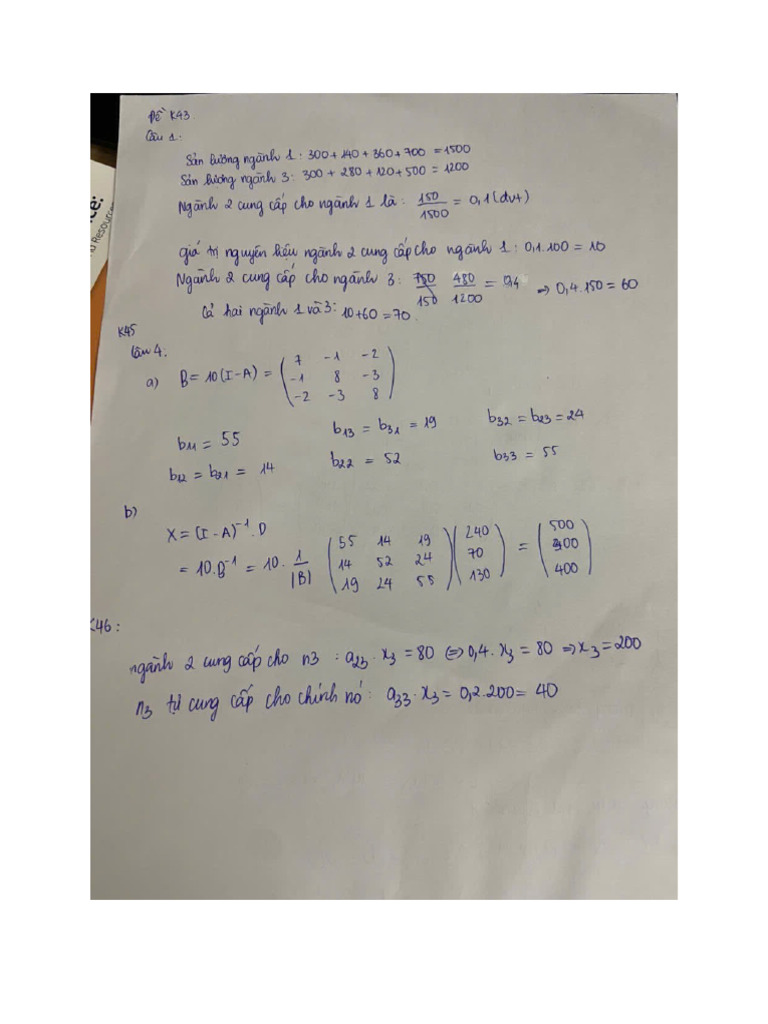 Đề K43.
Câu 1:
Sản lượng ngành 1: 300+140+360+700 = 1500
Sản lượng ngành 3: 300 + 280 +120+500 = 1200
Ngành 2 cung cấp cho ngành 1 là: 150/1500 = 0,1 (đvt)
giá trị nguyên liệu ngành 2 cung cấp cho ngành 1: 0,1.100 = 10
Ngành 2 cung cấp cho ngành 3: 750/150 480/1200 = 0,4 => 0,4.150 = 60
Cả hai ngành 1 và 3: 10+60 = 70.
K45
Câu 4:
a) B = 10(I-A) = ( 7 -1 -2
-1 8 -3
-2 -3 8 )
b11 = 55 b13 = b31 = 19 b32 = b23 = 24
b12 = b21 = 14 b22 = 52 b33 = 55
b)
X = (I-A)^-1 . D
= 10.B^-1 = 10. 1/|B| ( 55 14 19
14 52 24
19 24 55 ) ( 240
70
130 ) = ( 500
300
400 )
K46:
ngành 2 cung cấp cho n3 : a23 . x3 = 80 <=> 0,4. x3 = 80 => x3 = 200
n3 tự cung cấp cho chính nó: a33 . x3 = 0,2.200 = 40